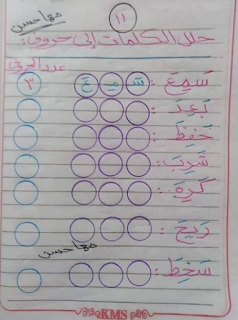 مها حسن
١١
حلل الكلمات إلى حروف:
عدد الحروف
سَمِعَ : سَ مِ عَ ٣
بَعِدَ :
حَفِظَ :
شَرِبَ :
كَرِهَ :
رَبِحَ :
مها حسن
سَخِطَ :
KMS